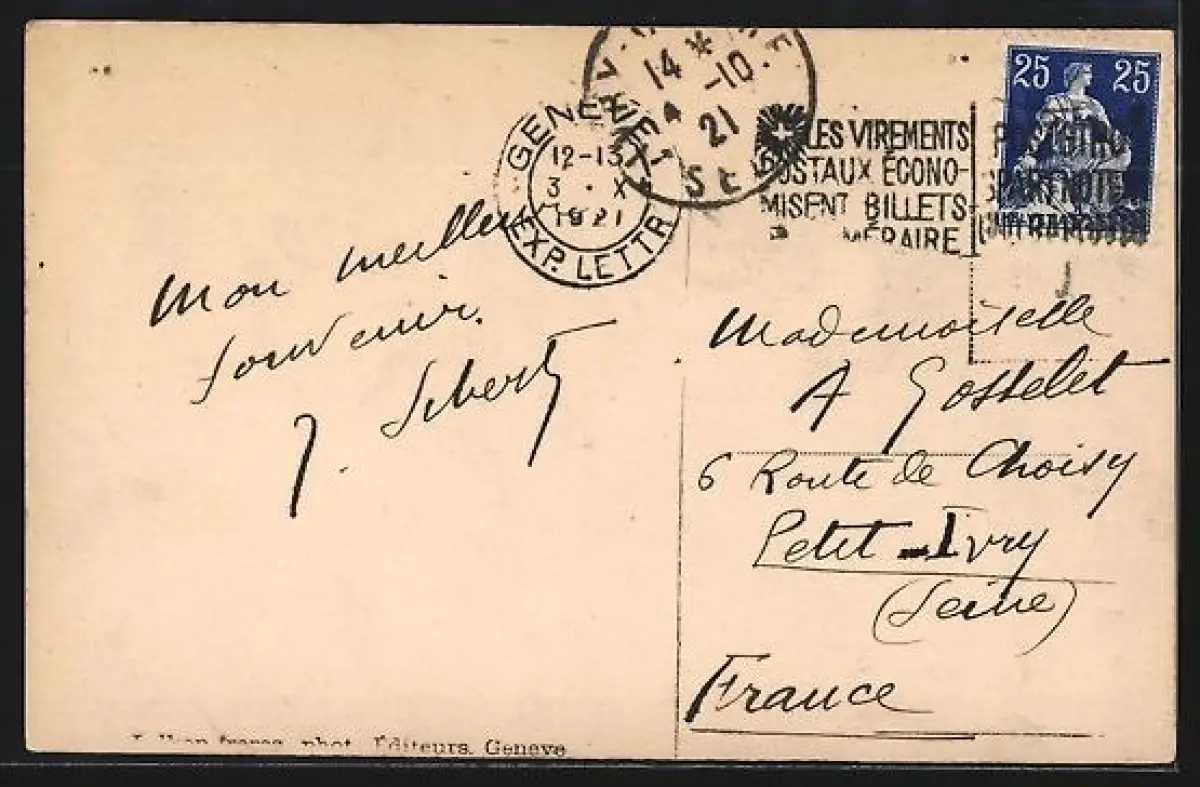 Mon meilleur
souvenir.
J. Sibert
GENÈVE 1
12-13
3 · X
1921
EXP. LETTR
14 *
4 -10.
21
SEINE
LES VIREMENTS
POSTAUX ÉCONO-
MISENT BILLETS
MÉRAIRE
25 25
Mademoiselle
A Gosselet
6 Route de Choisy
Petit-Ivry
(Seine)
France
frères, phot. Editeurs. Genève